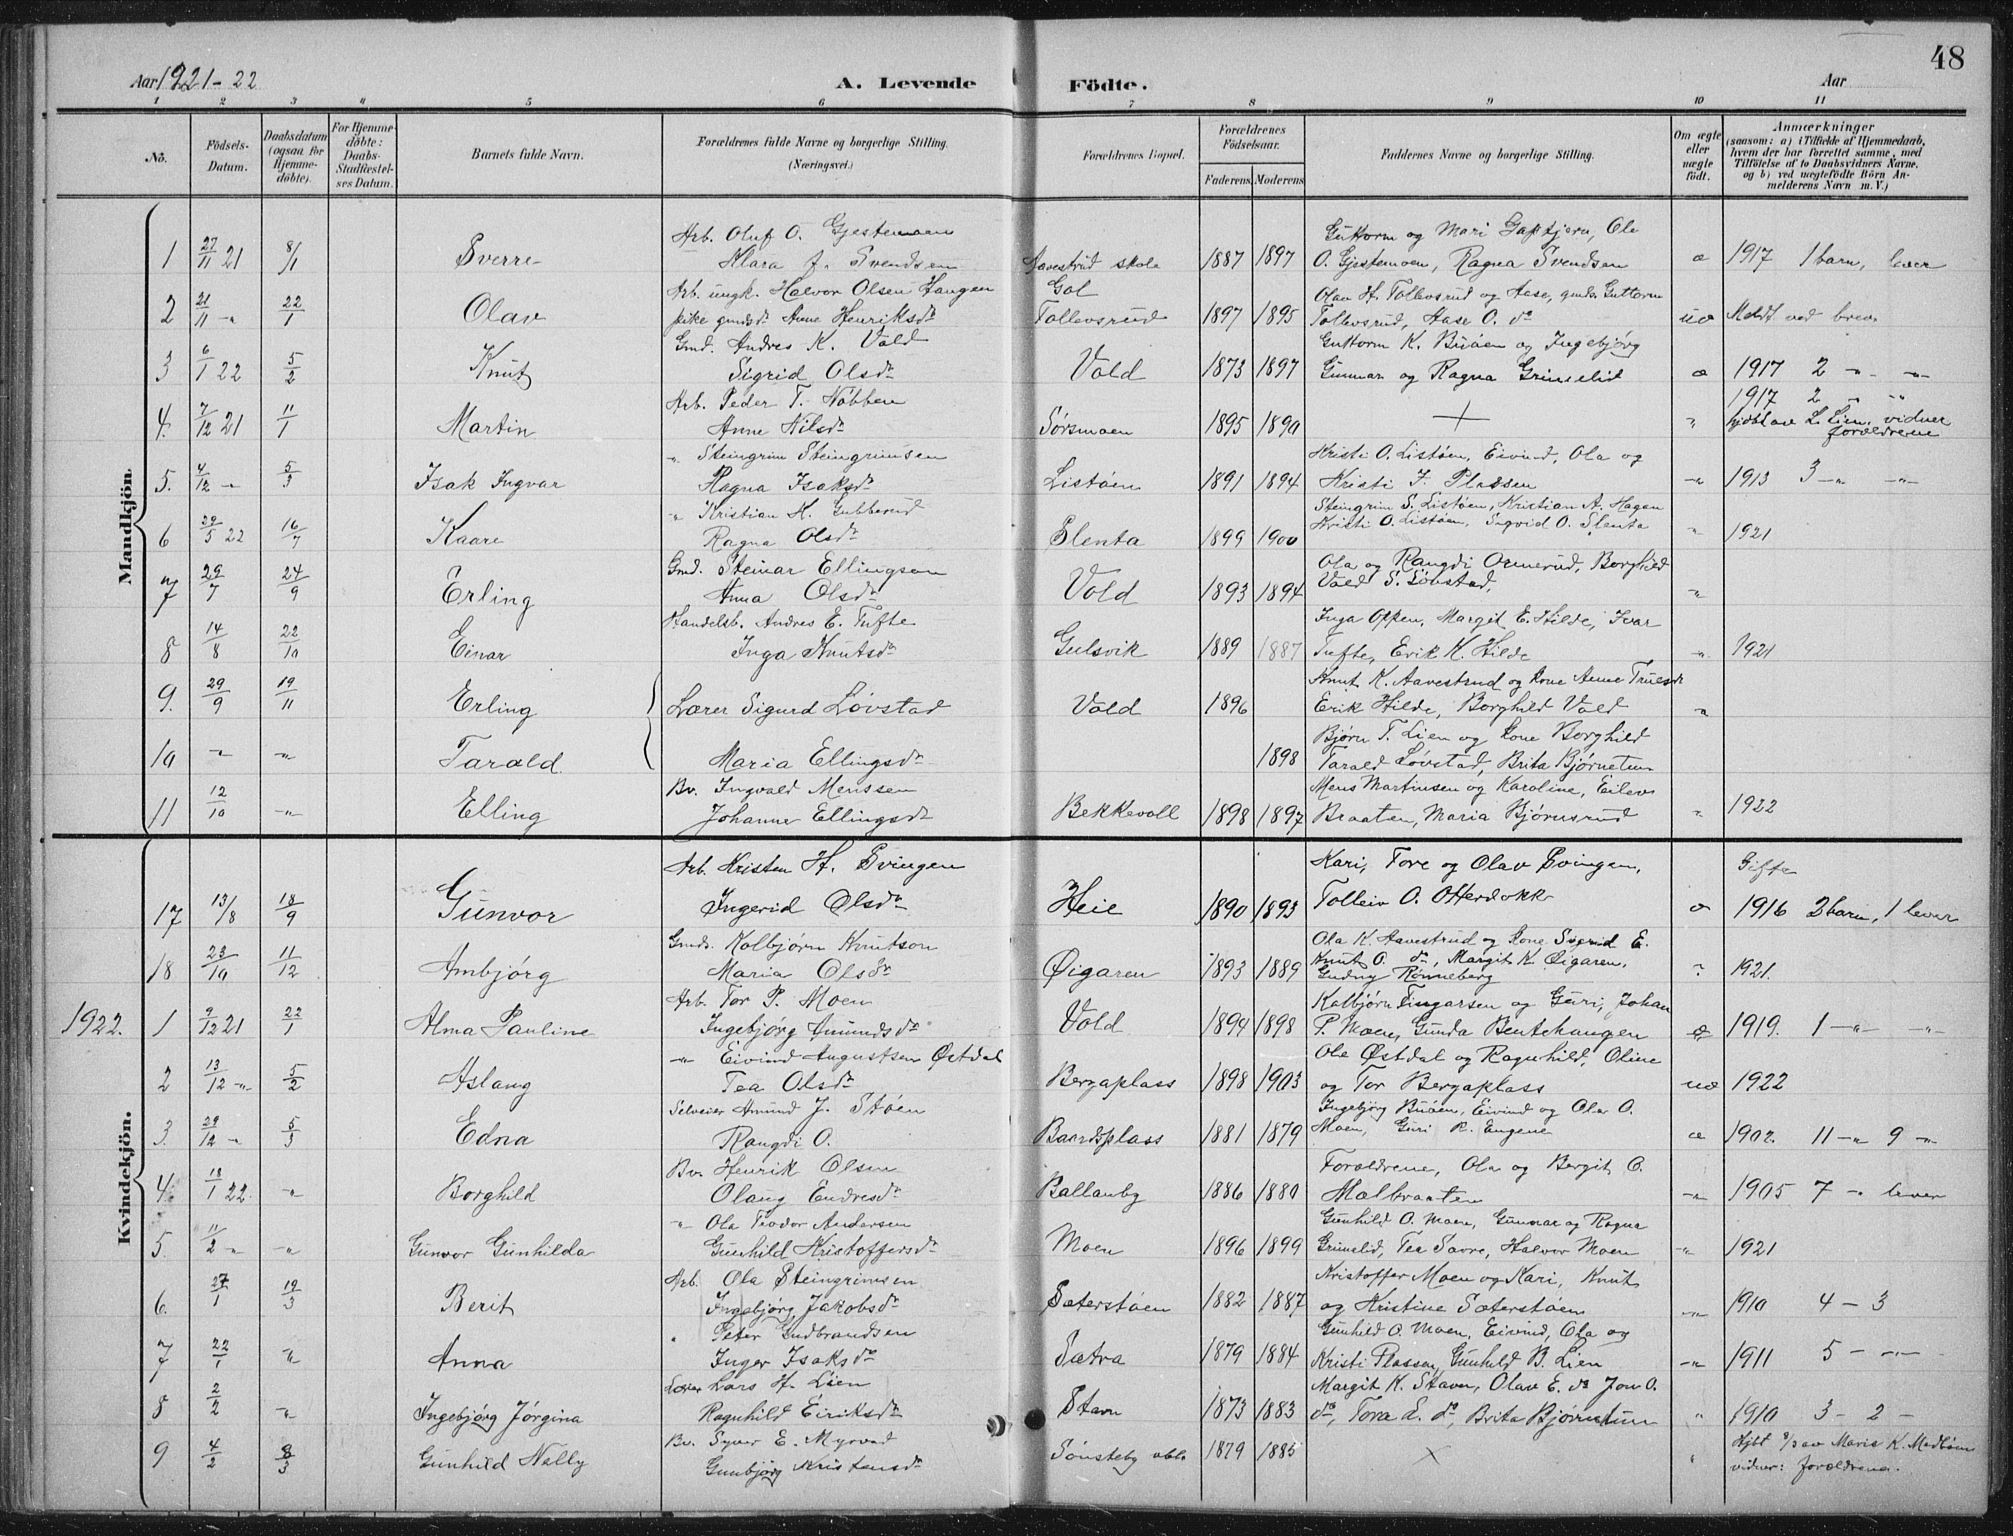 48
Aar 1921-22
A. Levende
Födte.
Aar
1 2 3 4 5 6 7 8 9 10 11
No.
Födsels-Datum.
Daabsdatum (ogsaa for Hjemme-döbte).
For Hjemme-döbte: Daabs-Stadfæstel-ses Datum.
Barnets fulde Navn.
Forældrenes fulde Navne og borgerlige Stilling. (Næringsvei.)
Forældrenes Bopæl.
Forældrenes Födselsaar.
Faderens. Moderens
Faddernes Navne og borgerlige Stilling.
Om ægte eller uægte födt.
Anmærkninger
(saasom: a) i Tilfælde af Hjemmedaab, hvem der har forrettet samme, med Tilföielse af to Daabsvidners Navne, og b) ved uægtefödte Börn An-melderens Navn m. V.)
Mandkjön.
Arb. Oluf O. Gjestemoen Guttorm og Mari, Ole
1 27/11 21 8/1 Sverre Klara J. Svendsen Aavestrud skole 1887 1897 O. Gjestemoen, Ragna Svendsen æ 1917 1 barn, lever
Arb. ungk. Halvor Olsen Haugen Gol Olav H. Tollevsrud og Aase, gmds. Guttorm
2 21/11 -"- 22/1 Olav pike gmdsdr Anne Henriksdr Tollevsrud 1897 1895 Tollevsrud, Aase O. do uæ Meldt ved brev
Gmd. Andres K. Vold Guttorm K. Buöen og Ingebjörg
3 6/1 22 5/2 Knut Sigrid Olsdr Vold 1873 1897 Gunnar og Ragna Grimslid æ 1917 2 -"- -"-
Arb. Peder T. Nöbben 1917 2 " "
4. 7/12 21 11/1 Martin Anne Nilsdr Sörsmoen 1895 1890 + " hjdöbt av L. Lien, vidner forældrene
" Steingrim Steingrimsen Kristi O. Listöen, Eivind, Ola og
5. 4/12 -"- 5/3 Isak Ingvar Ragna Isaksdr Listöen 1891 1894 Kristi J. Plassen -"- 1913 3 -"- -"-
" Kristian H. Gubberud Steingrim S. Listöen, Kristian A. Hagen
6 29/5 22 16/7 Kaare Ragna Olsdr Slenta 1899 1900 Kristi O. Listöen, Ingrid O. Slenta " 1921
Gmd. Steinar Ellingsen Ola og Rangdi Ormerud, Borghild
7 29/7 24/9 Erling Anna Olsdr Vold 1893 1894 Vold S. Lövstad, "
Handelsb. Andres E. Tufte Inga Oppen, Margit E. Hilde, Ivar
8 14/8 22/10 Einar Inga Knutsdr Gulsvik 1889 1887 Tufte, Erik K. Hilde " 1921
Knut K. Aavestrud og kone Anne Truesdr
9. 29/9 19/11 Erling Lærer Sigurd Lövstad Vold 1896 Erik Hilde, Borghild Vold "
Björn T. Lien og kone Borghild
10 -"- -"- Tarald Maria Ellingsdr 1898 Tarald Lövstad, Brita Björnetun
Bv. Ingvald Menssen Mens Martinsen og Karoline, Eilev
11 12/10 -"- Elling Johanne Ellingsdr Bekkevoll 1898 1897 Braaten, Maria Björnsrud " 1922
Kvindekjön.
Arb. Kristen H. Svingen Kari, Tore og Olav Svingen, Gifte
17 13/8 18/9 Gunvor Ingerid Olsdr Heie 1890 1893 Tolleiv O. Otterdokk æ 1916 2 barn, 1 lever
Gmds. Kolbjörn Knutson Ola K. Aavestrud og kone Sigrid E.
18 23/10 11/12 Ambjörg Maria Olsdr Öigaren 1893 1889 Knut O. do, Margit K. Öigaren, Gudny Rönneberg " 1921.
Arb. Tor P. Moen Kolbjörn Fingarsen og Guri, Johan
1922. 1 9/12 21 22/1 Alma Pauline Ingebjörg Amundsdr Vold 1894 1898 P. Moen, Gunda Bentehaugen æ 1919. 1 -"- -"-
-"- Eivind Augustsen Östdal Ole Östdal og Ragnhild, Oline
2 13/12 -"- 5/2 Aslaug Tea Olsdr Bergaplass 1898 1903 og Tor Bergaplass uæ 1922
Selveier Amund J. Stöen Ingebjörg Buöen, Eivind og Ola O.
3. 29/12 -"- 5/3 Edna Rangdi O. Baardsplass 1881 1879 Moen, Guri R. Eugene æ 1902. 11 -"- 9 -"-
Bv. Henrik Olsen Forældrene, Ola og Bergit O.
4. 18/1 22. -"- Borghild Olaug Endresdr Ballanby 1886 1880 Malbraaten -"- 1905 7 -"- lever
" Ola Teodor Andersen Gunhild O. Moen, Gunnar og Ragna
5. 11/2 -"- -"- Gunvor Gunhilda Gunhild Kristoffersdr Moen 1896 1899 Grimslid, Tea Savre, Halvor Moen -"- 1921
Arb. Ola Steingrimsen Kristoffer Moen og Kari, Knut
6. 27/1 19/3 Berit Ingebjörg Jakobsdr Sæterstöen 1882 1887 og Kristine Sæterstöen -"- 1910 4 - 3
" Peter Gudbrandsen Gunhild O. Moen, Eivind, Ola og
7 22/1 -"- Anna Inger Isaksdr Sætra 1879 1884 Kristi Plassen, Gunhild B. Lien -"- 1911 5 - -"-
Lærer Lars H. Lien Margit K. Staven, Olav E. do Jon O.
8 2/2 " Ingebjörg Jörgina Ragnhild Eiriksdr Stavn 1873 1883 do, Tora E. do, Brita Björnetun " 1910 3 - 2 -
Bv. Syver E. Myrvad Hjdt 8/3 av Maris K. Medböen
9 4/2 8/3 Gunhild Nally Gunbjörg Kristensdr Sönsteby 1879 1885 × " vidner: forældrene.